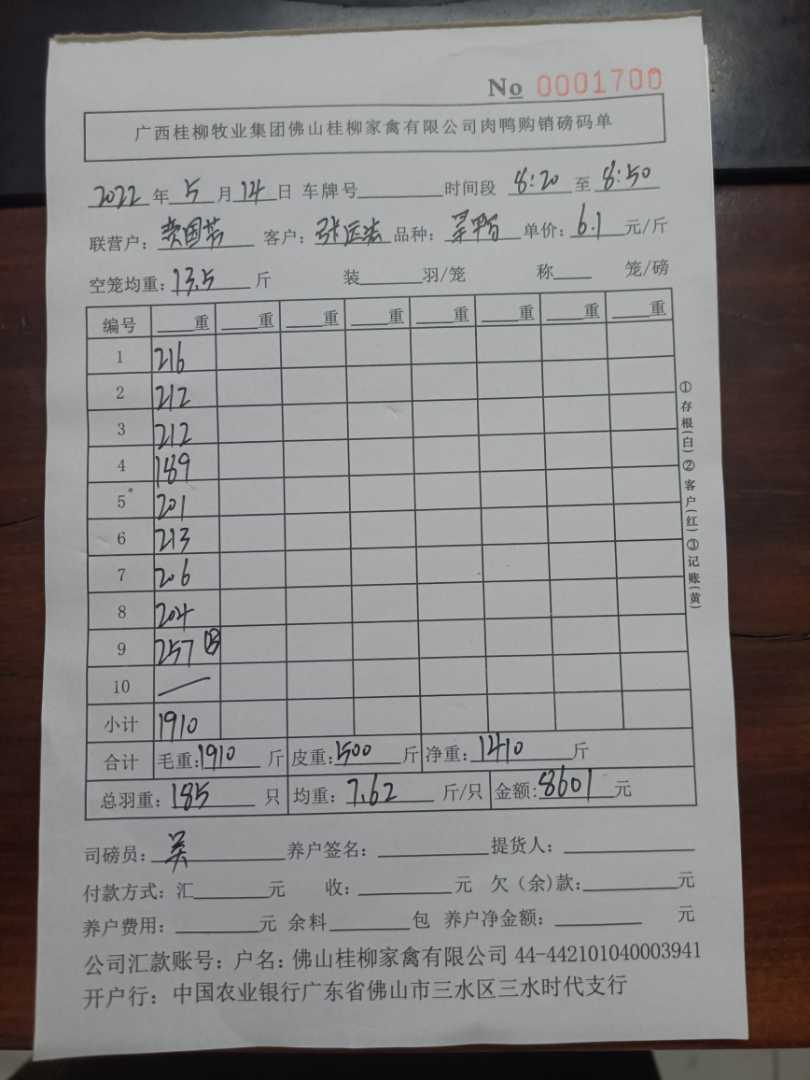 No 0001700
广西桂柳牧业集团佛山桂柳家禽有限公司肉鸭购销磅码单
2022 年 5 月 14 日 车牌号 时间段 8:20 至 8:50
联营户: 客户: 品种: 单价: 6.1 元/斤
空笼均重: 13.5 斤 装 羽/笼 称 笼/磅
编号 重 重 重 重 重 重 重 重
1 216
2 212
3 212
4 189
5 201
6 213
7 206
8 204
9 257
10
小计 1910
合计 毛重: 1910 斤 皮重: 500 斤 净重: 1410 斤
总羽重: 185 只 均重: 7.62 斤/只 金额: 8601 元
司磅员: 吴 养户签名: 提货人:
付款方式: 汇 元 收: 元 欠(余)款: 元
养户费用: 元 余料 包 养户净金额: 元
公司汇款账号: 户名: 佛山桂柳家禽有限公司 44-442101040003941
开户行: 中国农业银行广东省佛山市三水区三水时代支行
①存根(白)②客户(红)③记账(黄)